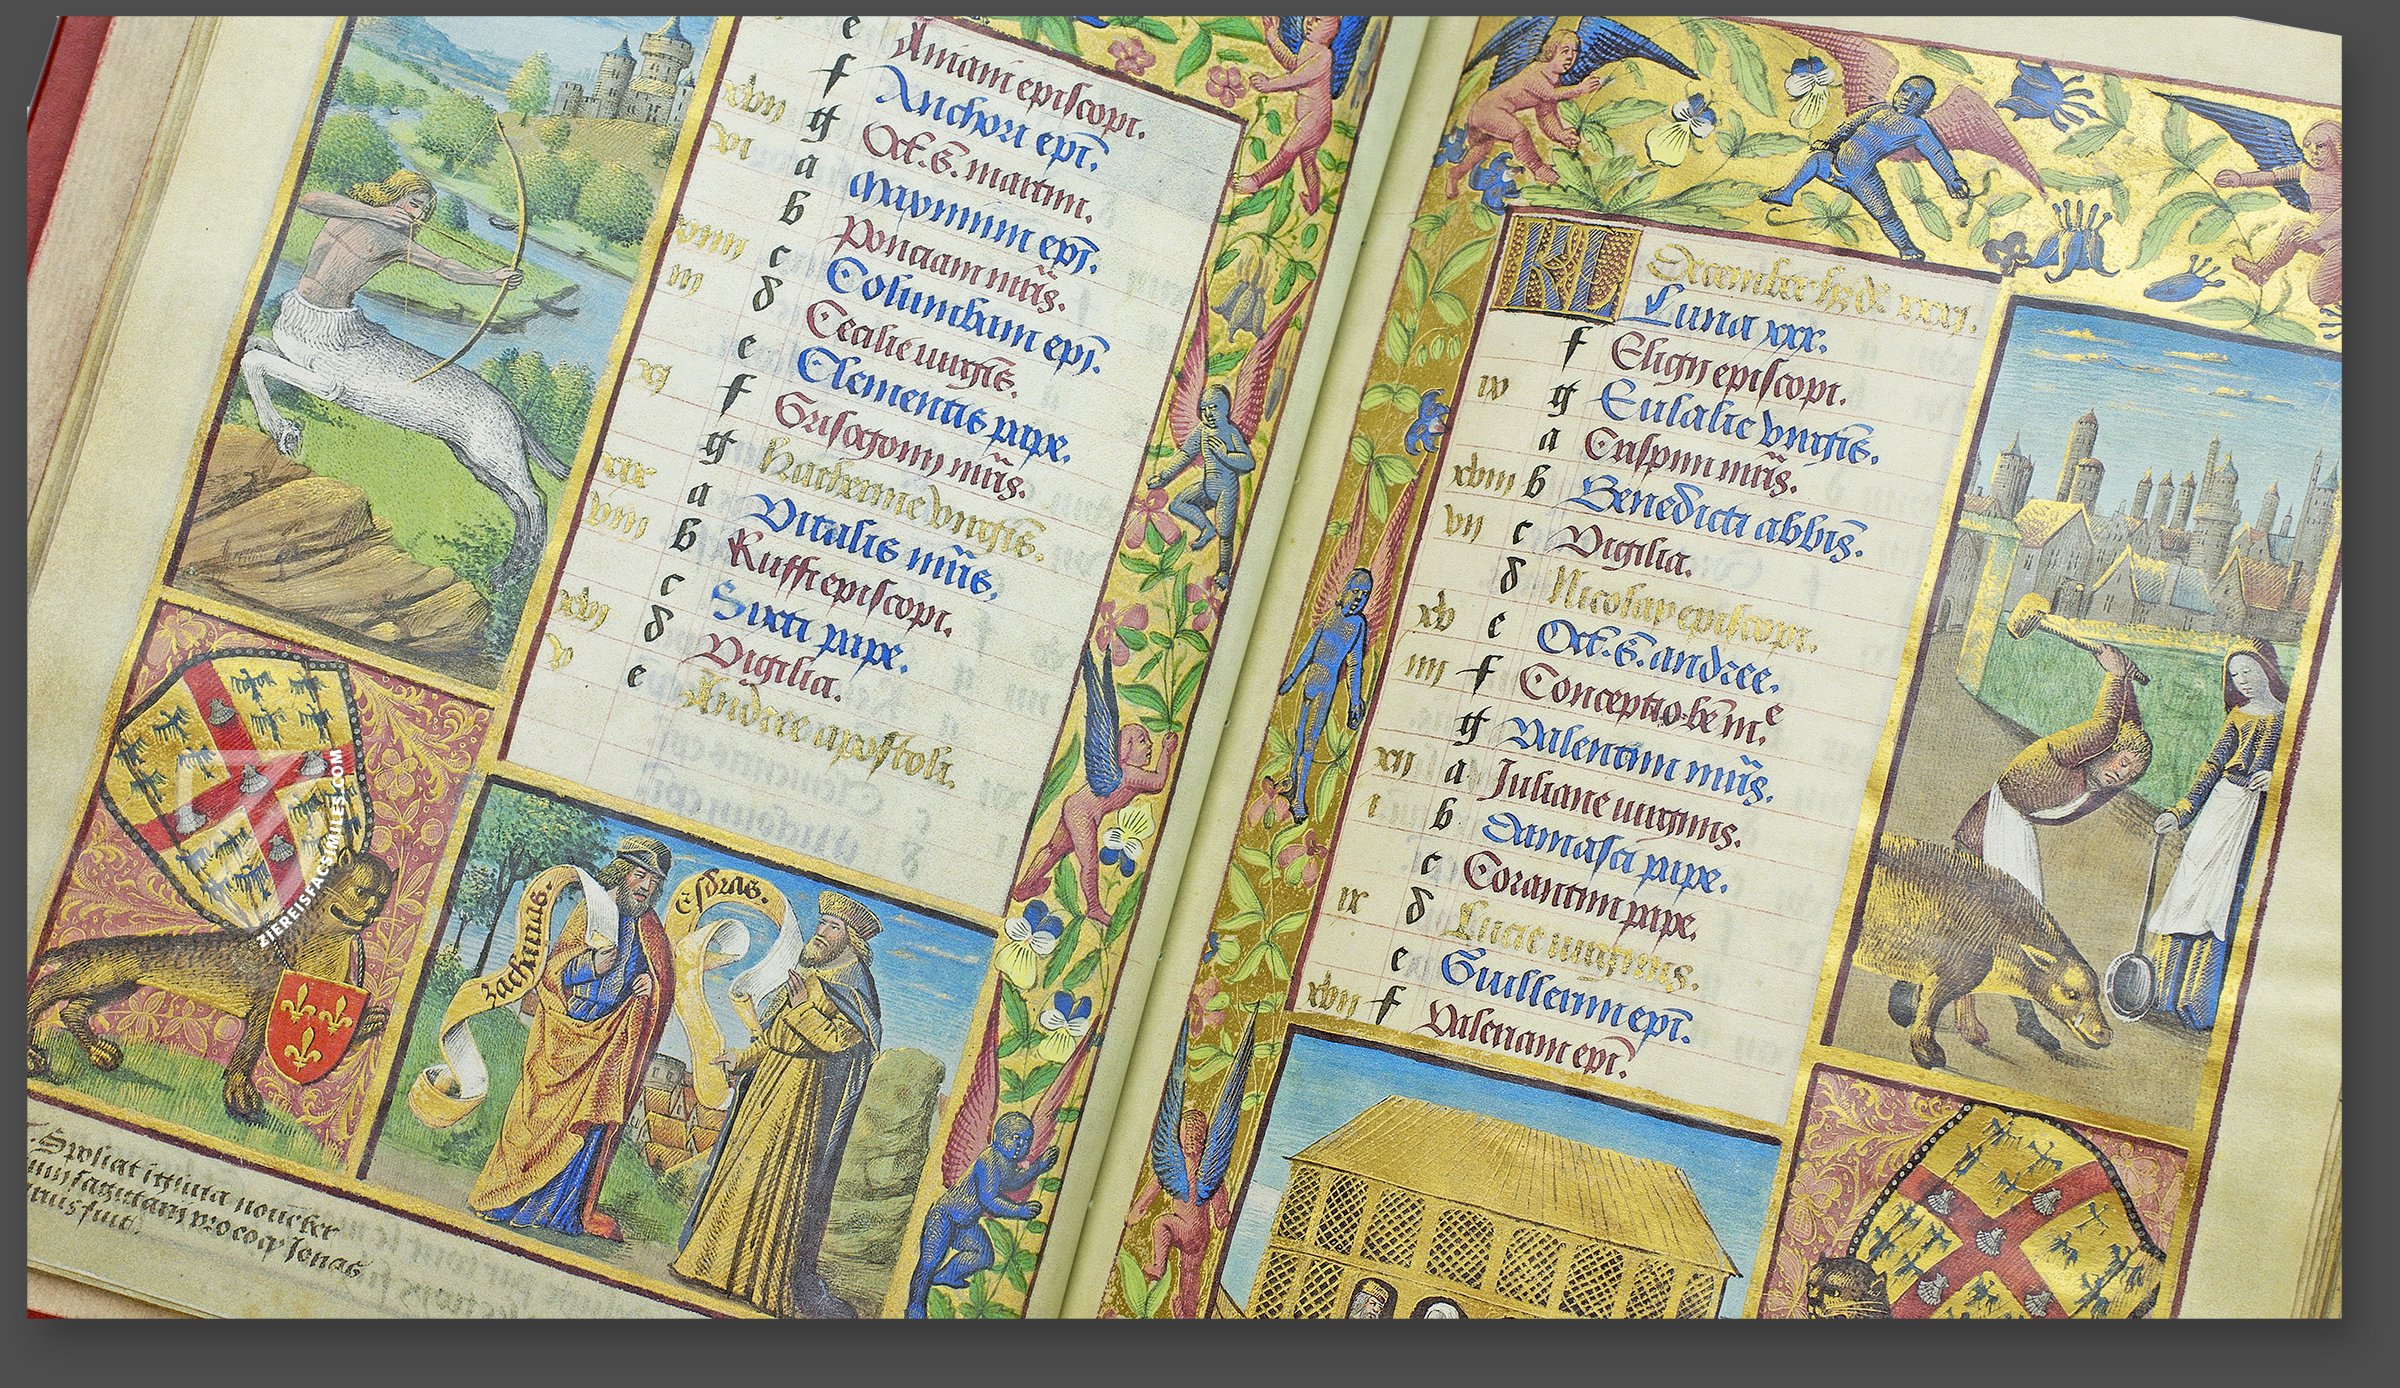 e Aniani episcopi.
f Anchori epi.
xvii g Oct. s. martini.
vi a Maximini epi.
b Ponciani mris.
xiiii c Columbani epi.
iii d Cecilie virgis.
e Clementis pape.
xi f Grisogoni mris.
g Katherine virgis.
xix a Vitalis mris.
viii b Ruffi episcopi.
c Sixti pape.
xvi d Vigilia.
v e Andree apostoli.
zacharias.
Esdras.
ZIEREISFACSIMILES.COM
KL December h3 d. xxxi.
Luna xxx.
f Eligii episcopi.
iv g Eulalie virgis.
a Crispini mris.
xviii b Benedicti abbis.
vii c Vigilia.
d Nicolay episcopi.
xv e Oct. s. andree.
iiii f Conceptio be me.
g Valentini mris.
xii a Juliane virginis.
i b Damasi pape.
c Corantini pape.
ix d Lucie virginis.
e Guillermi epi.
xvii f Valeriani epi.